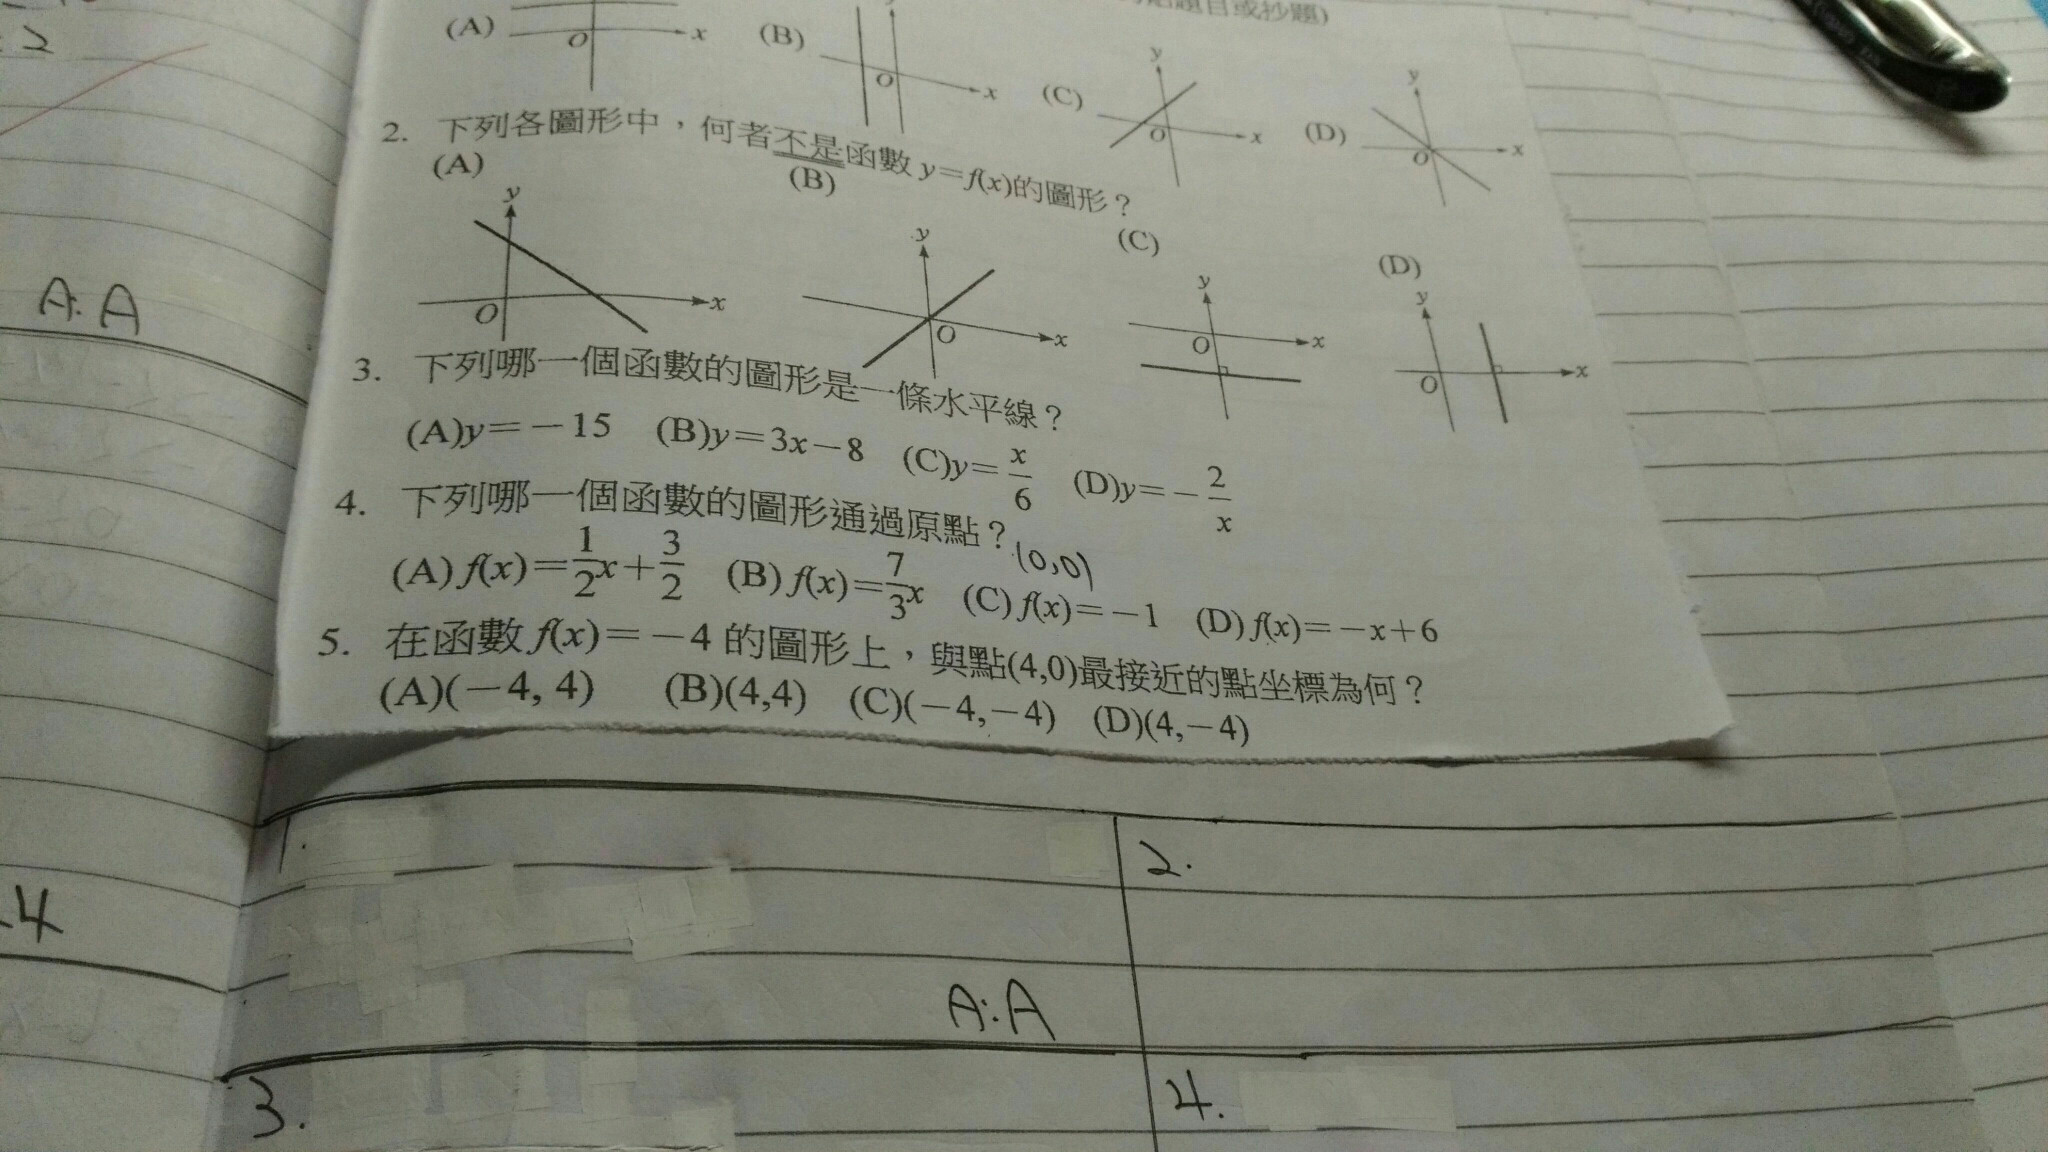 題目或抄題)
(A) O x (B) O x (C) y O x (D) y O x
2. 下列各圖形中，何者不是函數 y=f(x)的圖形？
(A) (B) (C) (D)
y O x y O x y O x y O x
3. 下列哪一個函數的圖形是一條水平線？
(A)y=－15 (B)y=3x－8 (C)y=x/6 (D)y=－2/x
4. 下列哪一個函數的圖形通過原點？(0,0)
(A) f(x)=1/2x+3/2 (B) f(x)=7/3x (C) f(x)=－1 (D) f(x)=－x+6
5. 在函數 f(x)=－4 的圖形上，與點(4,0)最接近的點坐標為何？
(A)(－4, 4) (B)(4,4) (C)(－4,－4) (D)(4,－4)
A:A
4
1.
2.
A:A
3.
4.